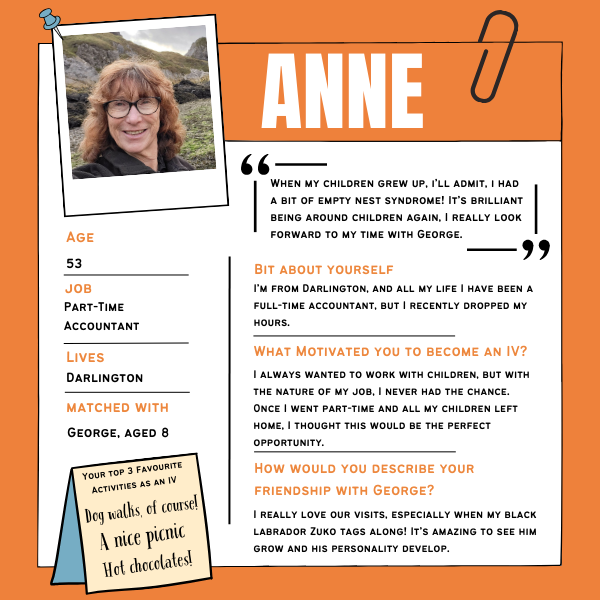 ANNE
When my children grew up, I'll admit, I had
a bit of empty nest syndrome! It's brilliant
being around children again, I really look
forward to my time with George.
Age
53
Job
Part-Time
Accountant
Lives
Darlington
matched with
George, aged 8
Your top 3 Favourite
Activities as an IV
Dog walks, of course!
A nice picnic
Hot chocolates!
Bit about yourself
I'm from Darlington, and all my life I have been a
full-time accountant, but I recently dropped my
hours.
What Motivated you to become an IV?
I always wanted to work with children, but with
the nature of my job, I never had the chance.
Once I went part-time and all my children left
home, I thought this would be the perfect
opportunity.
How would you describe your
friendship with George?
I really love our visits, especially when my black
labrador Zuko tags along! It's amazing to see him
grow and his personality develop.